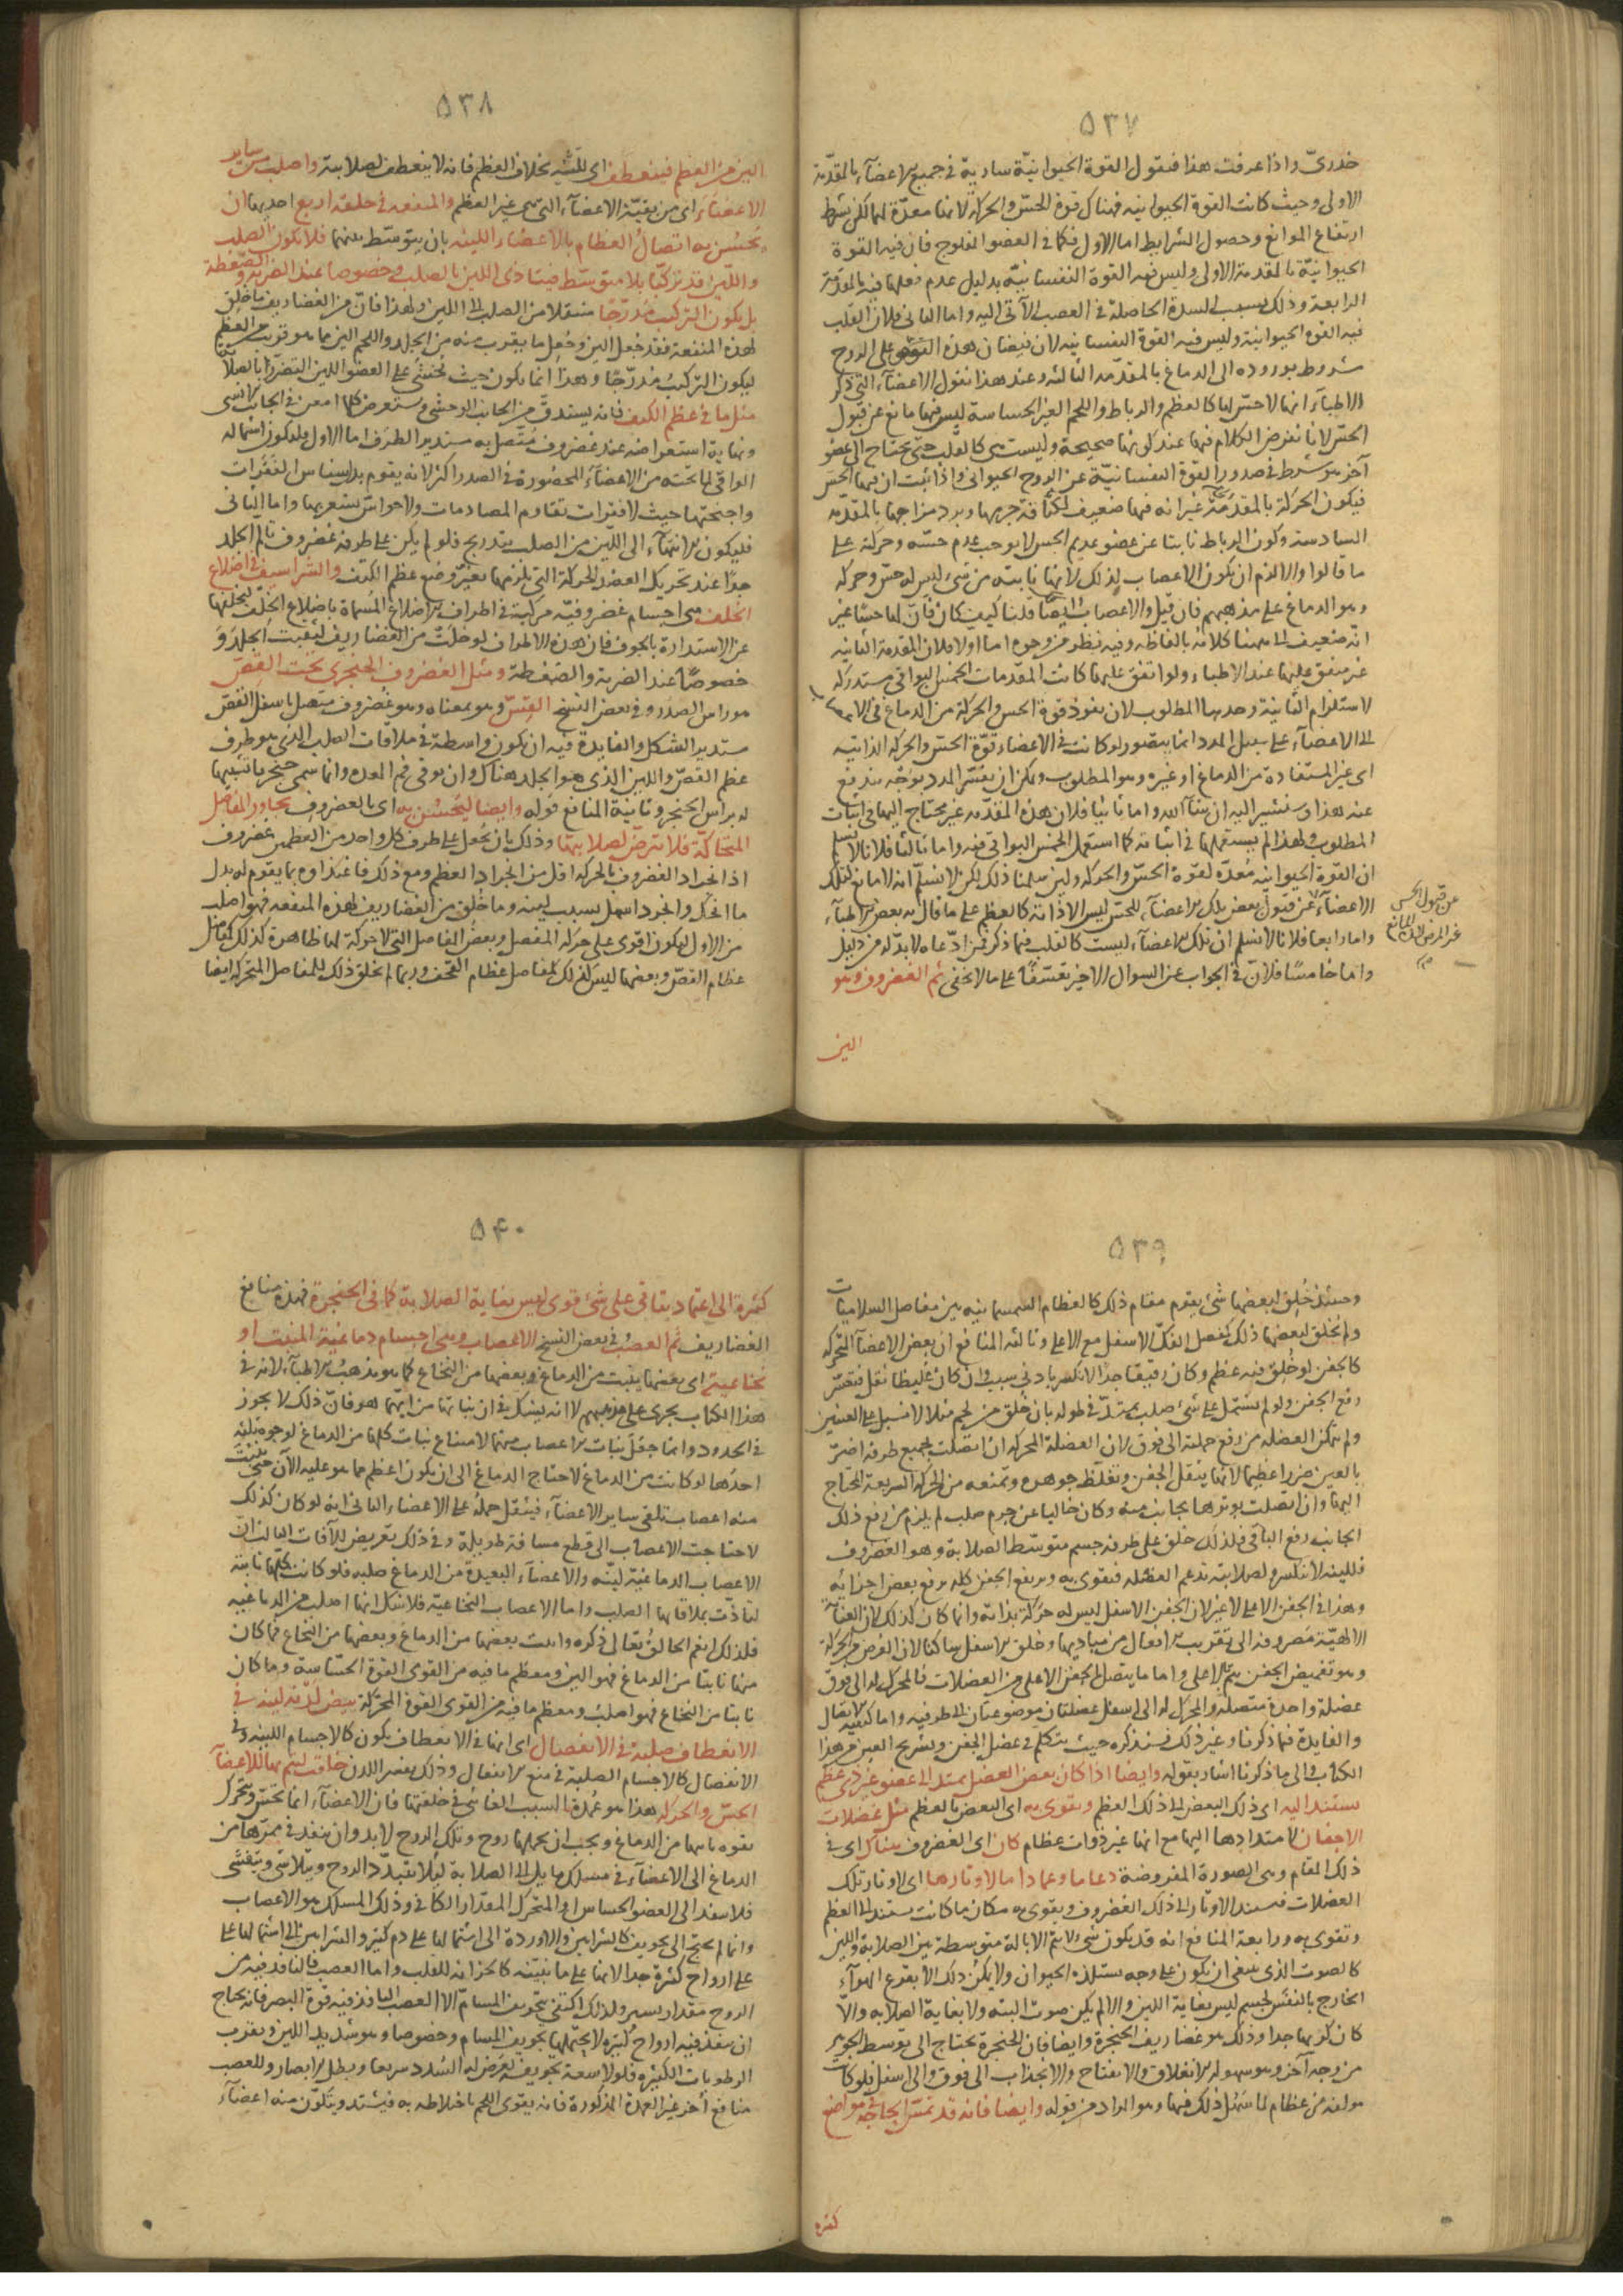 ٥٣٧
خدريّ واذا عرفت هذا فنقول القوة الحيوانيّة سارية في جميع الاعضآء بالمقدّمة
الاولى وحيث كانت القوة الحيوانيه فهناك قوة الحسّ والحركة لانها معدّة لهما لكن بشرط
ارتفاع الموانع وحصول الشرايط اما الاول فكما في العضو المفلوج فان فيه القوة
الحيوانيّة بالمقدمة الاولى وليس فيه القوة النفسانيّة بدليل عدم فعلها فيه بالمقدّمة
الرابعة وذلك بسبب السدة الحاصلة في العصب الآتي اليه واما الثاني فلان القلب
فيه القوه الحيوانية وليس فيه القوة النفسانيه لان فيضان هذه القوى على الروح
مشروط بوروده الى الدماغ بالمقدّمه الثالثه وعند هذا نقول الاعضآء التي ذكر
الاطبآء انها لاحسّ لها كالعظم والرباط واللحم الغير الحساسة ليس فيها مانع عن قبول
الحسّ لانا نفرض الكلام فيها عند كونها صحيحة وليست هي كالقلب حتى يحتاج الى عضو
آخر هو شرط في صدور القوة النفسانيّة عن الروح الحيواني واذا ثبت ان فيها الحسّ
فيكون الحركة بالمقدمة غير انه فيها ضعيف لكثافة جرمها وبرد مزاجها بالمقدّمه
السادسة وكون الرباط نابتا عن عضو عديم الحس لا يوجب عدم حسّه وحركته على
ما قالوا والا لزم ان يكون الاعصاب كذلك لانها نابته من شئ ليس له حسّ وحركه
وهو الدماغ على مذهبهم فان قيل والاعصاب ايضا قلنا كيف كان فانّ لها حسّا غير
انّه ضعيف الى ههنا كلامه بالفاظه وفيه نظر من وجوه اما اولا فلان المقدمة الثانيه
غير متفق عليها عند الاطباء ولو اتفق عليها كانت المقدّمات الخمس البواقي مستدركه
لاستلزام الثانية وحدها المطلوب لان نفوذ قوة الحس والحركة من الدماغ في الاعصاب
الى الاعضآء على سبيل المدد انما يتصور لو كانت في الاعضاء قوّة الحسّ والحركه الذاتيه
اى غير المستفادة من الدماغ او غيره وهو المطلوب ويمكن ان يفسّر المدد بوجه يندفع
عنه هذا وسنشير اليه ان شآء الله واما ثانيا فلان هذه المقدّمه غير محتاج اليها في اثبات
المطلوب ولهذا لم يستعملها في اثباته كما استعمل الخمس البواقي فيه واما ثالثا فلانا لا نسلم
ان القوّة الحيوانيه مُعدّه لقوة الحسّ والحركه ولئن سلمنا ذلك لكن لا نسلّم انه لا مانع لتلك
الاعضآء عن قبول بعض تلك الاعضآء للحسّ ليس الا ذاته كالعظم على ما قال به بعض الاطبآء
واما رابعا فلانا لا نسلم ان تلك الاعضآء ليست كالقلب فيما ذكر فمن ادّعاه لا بدّ له من دليل
واما خامسًا فلانّ في الجواب عن السوال الاخير تعسّفًا على ما لا يخفى ثم الغضروف وهو
عن قبول الحس
غير المرض المانع
صح
الين
٥٣٨
الين من العظم فينعطف اى للّينه بخلاف العظم فانه لا ينعطف لصلابته واصلب من ساير
الاعضآء اى من بقيّة الاعضآء التى هي غير العظم والمنفعه في خلقه اربع احديها ان
يحسُن به اتصالُ العظام بالاعضاء اللينه بان يتوسّط بينهما فلا يكون الصلب
واللين قد تركّبا بلا متوسّط فيتاذى اللين بالصلب وخصوصا عند الضربة والضغطة
بل يكون التركيب مُدرّجًا منتقلا من الصلب الى اللين ولهذا فانّ من الغضاريف ما خلق
لهذه المنفعه فقد جُعل الين وجُعل ما يقرب منه من الجلد واللحم الين مما هو قريب من العظم
ليكون التركيبُ مدرّجًا وهذا انما يكون حيث يُخشى على العضو اللين التضرّر بالصلابة
مثل ما في عظم الكتف فانه يستدقّ من الجانب الوحشى ويستعرض كلما امعن في الجانب الانسى
ونهاية استعراضه عند غضروف متّصل به مستدير الطرف اما الاول فليكون اشتماله
الواقى لما تحته من الاعضآء المحصُورة في الصدر اكثر لانه يقوم بدل سناسن الفقرات
واجنحتها حيث لا فقرات تقاوم المصادمات ولا حواسّ تشعر بها واما الثانى
فليكون الانتهآء الى اللين من الصلب بتدريج فلو لم يكن على طرفه غضروف تالم الجلد
جدا عند تحريك العضد الحركة التى يلزمها تغيّر وضع عظم الكتف والشّراسيف في اضلاع
الخلف هي اجسام غضروفيّه مركّبة في اطراف الاضلاع المُسماة باضلاع الخلف لتخلفها
عن الاستدارة بالجوف فان هذه الاطراف لو خلت من الغضاريف لثقبت الجلد و
خصوصًا عند الضربة والضغطة ومثل الغضروف الحنجرى تحت القصّ
هو راس الصدر وفي بعض النسخ القسّ وهو بمعناه وهو غضروف متصل باسفل القصّ
مستدير الشكل والفايدة فيه ان يكون واسطة في ملاقات الصلب الذى هو طرف
عظم القصّ واللين الذى هو الجلد هناك وان يوقى فم المعده وانما سمى حنجريا تشبيها
له براس الحنجر وثانية المنافع قوله وايضا ليحسُن به اى بالغضروف تجاور المفاصل
المتحاكّة فلا ترضّ لصلابتها وذلك بان يُجعل على طرف كل واحد من العظمين غضروف
اذ انجراد الغضروف بالحركه اقل من انجراد العظم ومع ذلك فاغتذاؤه بما يقوم له بدل
ما انحك وانجرد اسهل بسبب لينه وما خُلق من الغضاريف لهذه المنفعه فهو اصلب
من الاول ليكون اقوى على حركه المفصل وبعض المفاصل التى لا حركة لها ظاهرة كذلك كمفاصل
عظام القصّ وبعضها ليس كذلك كمفاصل عظام القحف وربما لم يخلق ذلك للمفاصل المتحركه ايضا
٥٣٩
وحينئذ خُلق لبعضها شئ يقوم مقام ذلك كالعظام السمسمانيه بين مفاصل السلاميات
ولم يُخلق لبعضها ذلك كمفصل الفكّ الاسفل مع الاعلى وثالثه المنافع ان بعض الاعضآء المتحركه
كالجفن لو خُلق فيه عظم وكان رقيقا جدا لانكسر بادنى سبب وان كان غليظا ثقل فتعسّر
رفع الجفن ولو لم يشتمل على شئ صلب يمتدّ في طوله بان خُلق من لحم مثلا لانسبل على العينين
ولم يتمكن العضله من رفع جملته الى فوق لان العضلة المحركه ان اتصلت بجميع طرفه اضرّ
بالعين ضررا عظيما لانها يثقل الجفن ويغلظ جوهره وتمنعه من الحركه السريعة المحتاج
اليها وان اتصلت بوترها بجانب منه وكان خاليا عن جرم صلب لم يلزم من رفع ذلك
الجانب رفع الباقى فلذلك خلق على طرفه جسم متوسّط الصلابة وهو الغضروف
فللينه لا ينكسر ولصلابته تدعم العضله فتقوى به ويرتفع الجفن كله برفع بعض اجزائه
وهذا في الجفن الاعلى لا غير لان الجفن الاسفل ليس له حركة بذاته وانما كان كذلك لان العناية
الالهيّة مصروفه الى تقريب الافعال من مباديها وخلق الاسفل ساكنا لان الغرض من الحركة
وهو تغميض الجفن يتم بالاعلى واما ما يتصل بالجفن الاعلى من العضلات فالمحرك له الى فوق
عضلة واحدة متصله والمحرك له الى اسفل عضلتان موضوعتان الى طرفيه واما كيفية الاتصال
والفايدة فيما ذكرنا وغير ذلك فسنذكره حيث يتكلم في عضل الجفن وتشريح العين من هذا
الكتاب والى ما ذكرنا اشار بقوله وايضا اذا كان بعض العضل يمتد الى عضو غير ذى عظم
يستند اليه اى ذلك البعض الى ذلك العظم ويقوى به اى البعض بالعظم مثل عضلات
الاجفان لامتدادها اليها مع انها غير ذوات عظام كان اى الغضروف هناك اى في
ذلك المقام وهى الصورة المفروضة دعاما وعمادا ما لاوتارها اى لاوتار تلك
العضلات فيستند الاوتار الى ذلك الغضروف ويقوى به مكان ما كانت يستند الى العظم
وتقوى به ورابعة المنافع انه قد يكون شئ لا يتم الا بالة متوسطة بين الصلابة واللين
كالصوت الذى ينبغى ان يكون على وجه يستلذه الحيوان ولا يمكن ذلك الا بقرع الهوآء
الخارج بالنفس لجسم ليس بغاية اللين والا لم يكن صوت البته ولا بغاية الصلابه والّا
كان كريها جدا وذلك هو غضاريف الحنجرة وايضا فان الحنجرة يحتاج الى توسط الجوهر
من وجه آخر وهو سهوله الانغلاق والانفتاح والانجذاب الى فوق والى اسفل فلو كانت
مولفه من عظام لما سهُل ذلك فيها وهو المراد من قوله وايضا فانه قد تمسّ الحاجة في مواضع
كثيره
٥٤٠
كثيرة الى اعتماد يتاتى على شئ قوى ليس بغاية الصلابة كما في الحنجرة فهذه منافع
الغضاريف ثم العصبُ وفي بعض النسخ الاعصاب وهى اجسام دماغية المنبت او
نخاعيته اى بعضها ينبت من الدماغ وبعضها من النخاع كما هو مذهب الاطبآء لانه في
هذا الكتاب يجرى على مذهبهم لا انه يشكل في ان نباتها من ايّهما هو فانّ ذلك لا يجوز
في الحدود وانما جعل نبات الاعصاب منهما لامتناع نبات كلها من الدماغ لوجوه ثلثه
احدها لو كانت من الدماغ لاحتاج الدماغ الى ان يكون اعظم مما هو عليه الآن حتى ينبت
منه اعصاب تلقى ساير الاعضآء فيثقل حمله على الاعضاء الثانى انه لو كان كذلك
لاحتاجت الاعصاب الى قطع مسافة طويلة وفي ذلك تعريض للآفات الثالث ان
الاعصاب الدماغية ليّنه والاعضآء البعيدة من الدماغ صلبه فلو كانت كلّها نابتة
لتاذت بملاقاتها الصلب واما الاعصاب النخاعيّة فلا شك انها اصلب من الدماغيه
فلذلك انعم الخالق تعالى ذكره وانبت بعضها من الدماغ وبعضها من النخاع فما كان
منها نابتا من الدماغ فهو الين ومعظم ما فيه من القوى القوة الحسّاسة وما كان
نابتا من النخاع فهو اصلب ومعظم ما فيه من القوى القوة المحركة بيض لدنة لينة في
الانعطاف صلبة في الانفصال اى انها في الانعطاف يكون كالاجسام اللينه وفى
الانفصال كالاجسام الصلبة في منع الانفعال وذلك يفسر اللدن خلقت ليتم بها للاعضآء
الحسّ والحركه هذا هو عُمدة السبب الغائى في خلقتها فان الاعضآء انما تحسّ وتتحرك
بقوه ياتيها من الدماغ ويجب ان يحملها روح وتلك الروح لا بد وان ينفذ في ممرّها من
الدماغ الى الاعضآء في مسلك مايل الى الصلابة لئلا يتبدّد الروح ويتلاشى ويتفشى
فلا ينفذ الى العضو الحساس او المتحرك المقدار الكافى وذلك المسلك هو الاعصاب
وانما لم يحتج الى تجويف كالشرايين والاوردة الى اشتمالها على دم كثير والشرايين الى اشتمالها على
على ارواح كثيرة جدا لانها على ما بيّنه كالخزانه للقلب واما العصب فالنافذ فيه من
الروح مقدار يسير ولذلك اكتفى بتجويف المسامّ الا العصب النافذ فيه قوّة البصر فانه يحتاج
ان ينفذ فيه ارواح كثيره لا يحتملها تجويف المسام وخصوصا وهو شديد اللين ويقرب
الرطوبات الكثيره فلولا سعة تجويفه لعرض له السُدد سريعا وبطل الابصار وللعصب
منافع اُخر غير العمدة المذكورة فانه يقوى اللحم باختلاطه به فيشتد ويتكوّن منه اعضآء